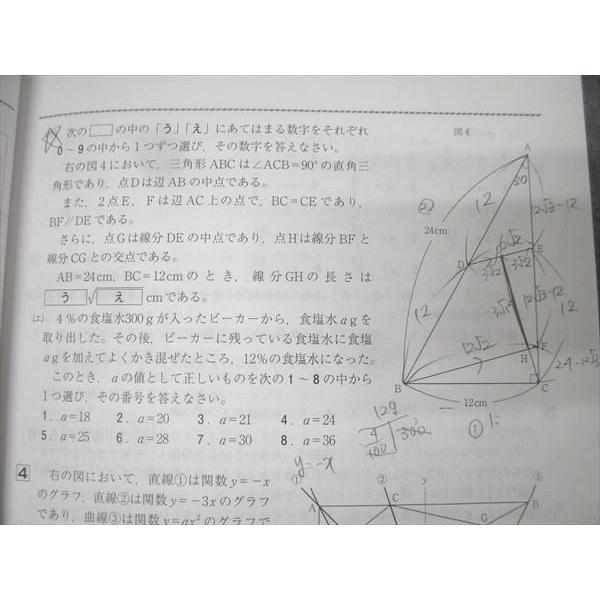 次の□の中の「う」「え」にあてはまる数字をそれぞれ
0～9の中から1つずつ選び，その数字を答えなさい。
右の図4において，三角形ABCは∠ACB=90°の直角三
角形であり，点Dは辺ABの中点である。
また，2点E，Fは辺AC上の点で，BC=CEであり，
BF∥DEである。
さらに，点Gは線分DEの中点であり，点Hは線分BFと
線分CGとの交点である。
AB=24cm，BC=12cmのとき，線分GHの長さは
う√え cmである。
(エ) 4％の食塩水300gが入ったビーカーから，食塩水agを
取り出した。その後，ビーカーに残っている食塩水に食塩
agを加えてよくかき混ぜたところ，12％の食塩水になった。
このとき，aの値として正しいものを次の1～8の中から
1つ選び，その番号を答えなさい。
1．a=18 2．a=20 3．a=21 4．a=24
5．a=25 6．a=28 7．a=30 8．a=36
4 右の図において，直線①は関数y=-x
のグラフ，直線②は関数y=-3xのグラフ
であり，曲線③は関数y=ax²のグラフで
図4
A
30
②
12
12√3-12
24cm
6√2
D
E
3√2
3√2
12
12√3-12
12
12√2
H
F
24-12√3
B
C
12cm
12g
4
100
300
① 1:
y=-x
①
②
y
③
A
C
B
G